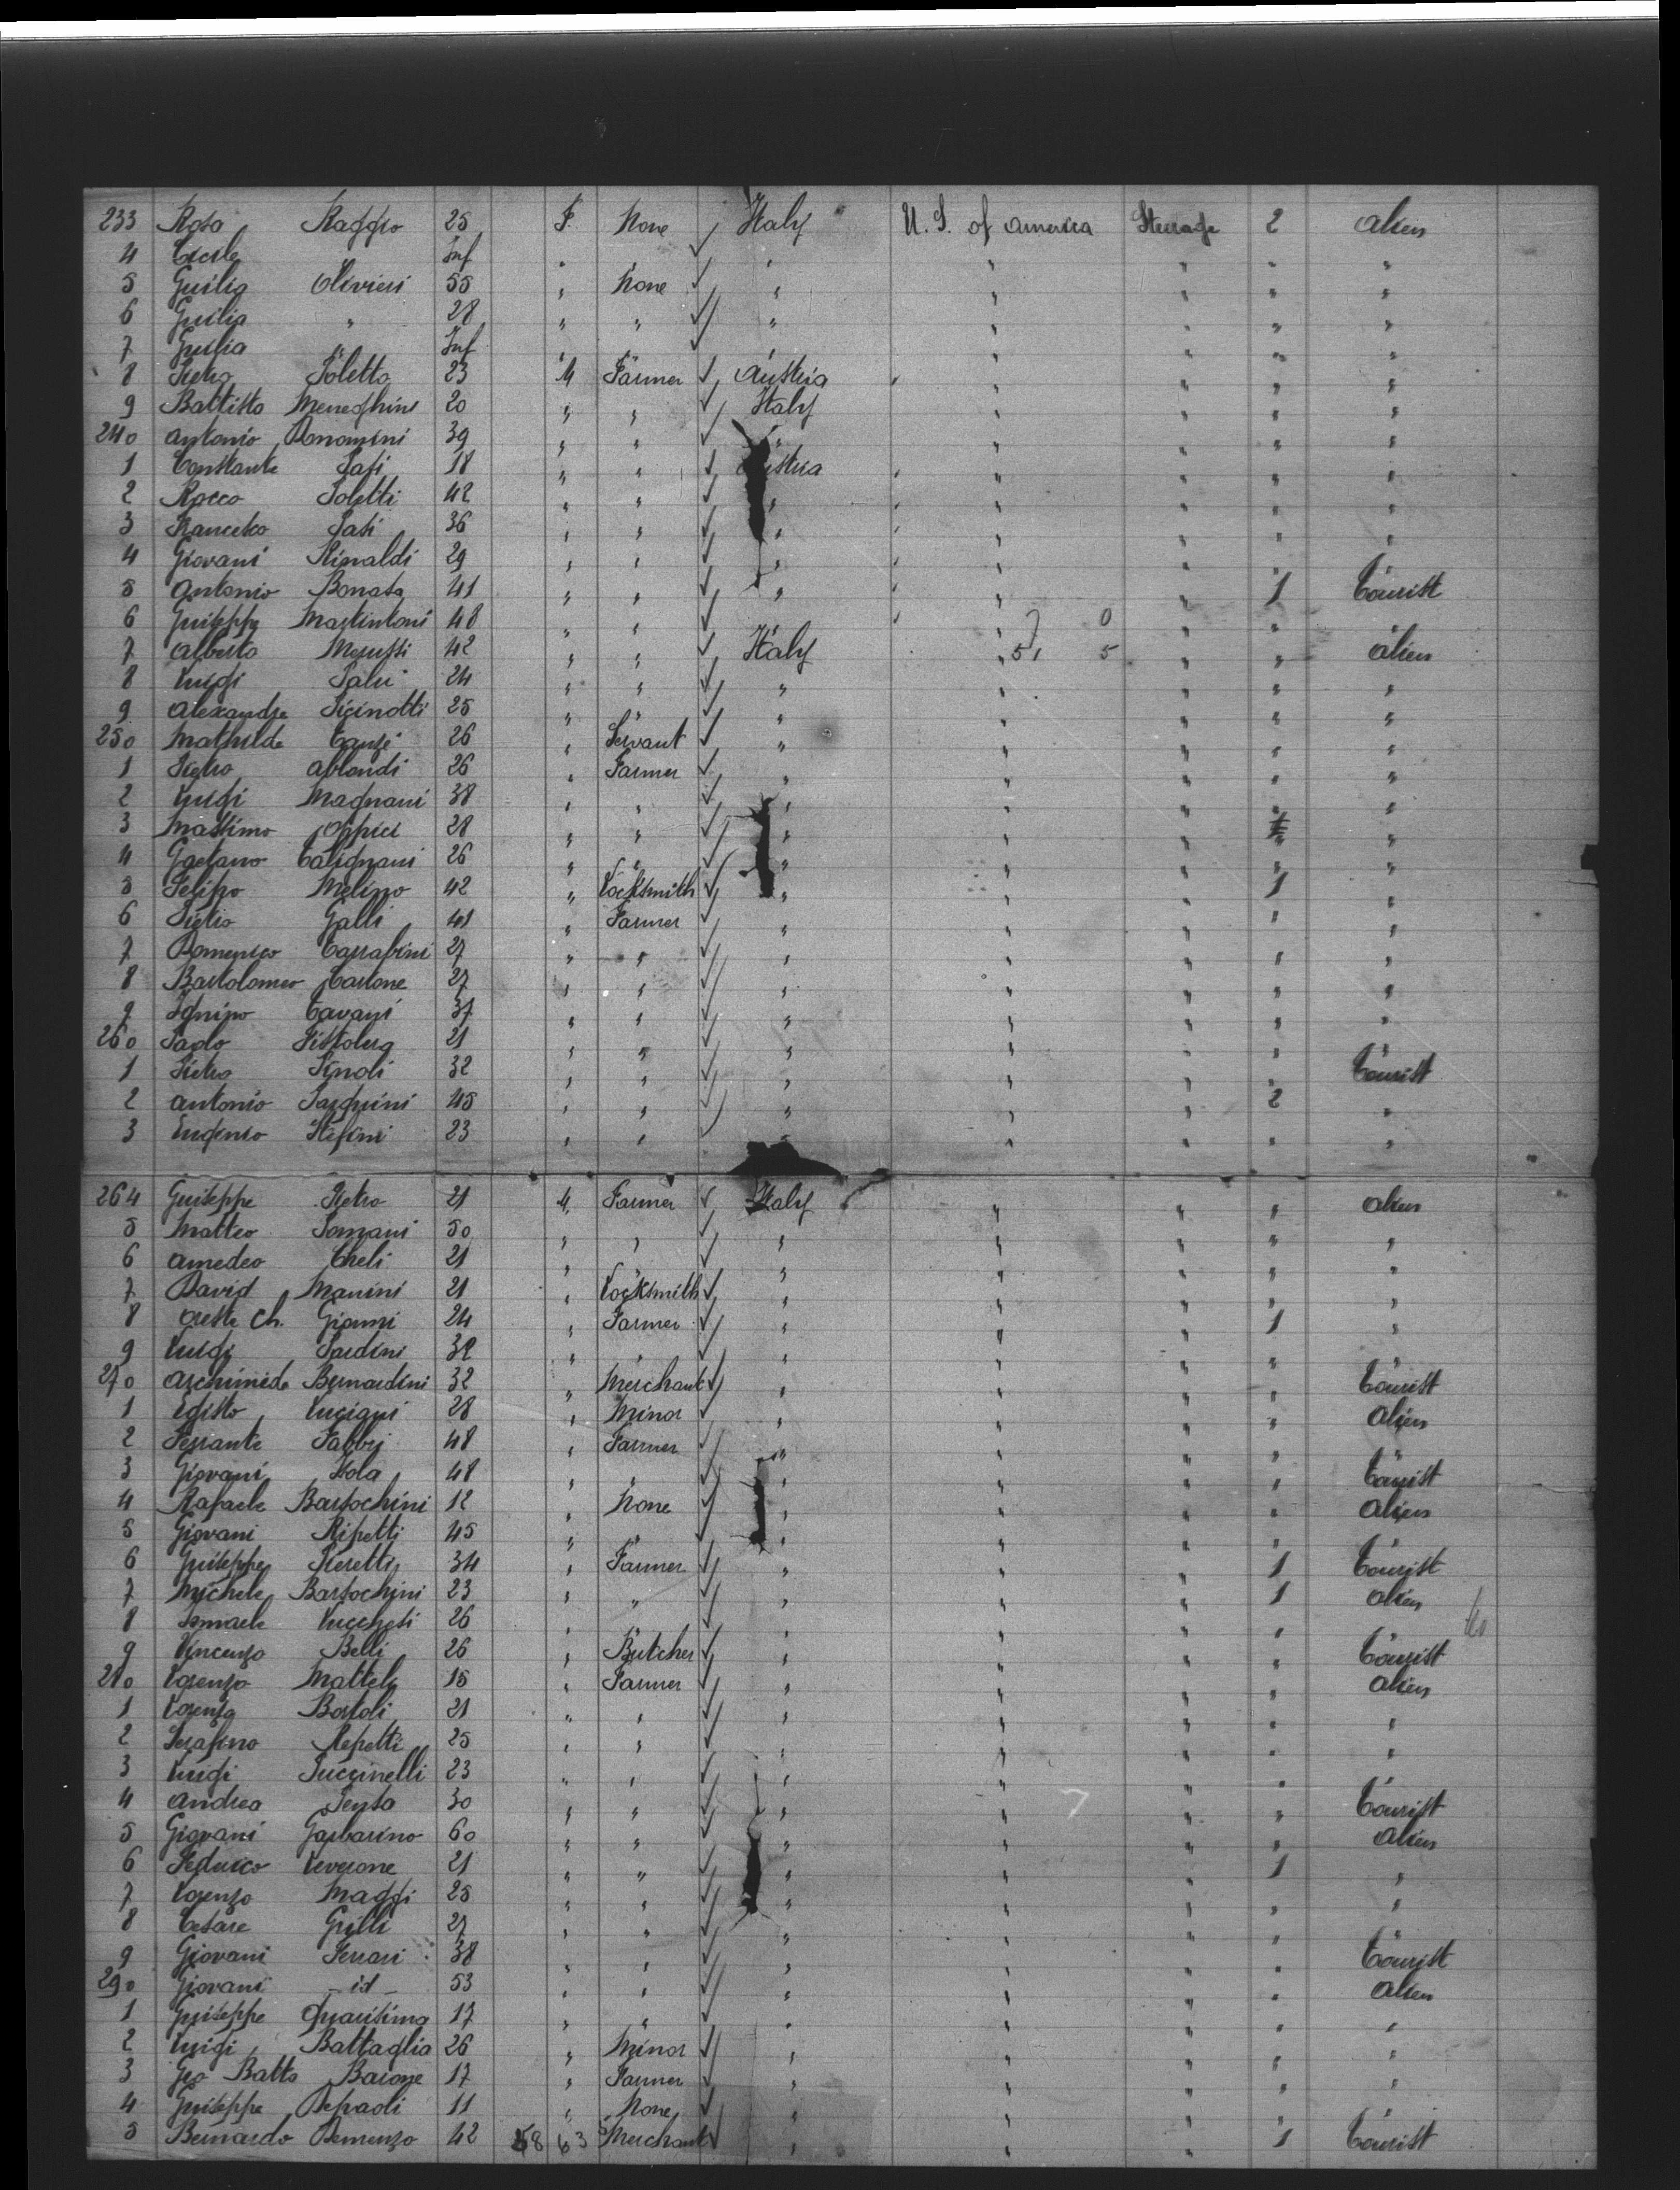 233 Rosa Raggio 25 F. None ✓ Italy U. S. of America Steerage 2 Alien
4 Cecile " Inf " " ✓ " " " " "
5 Guilia Olivieri 55 " None ✓ " " " " "
6 Guilia " 28 " " ✓ " " " " "
7 Guilia " Inf " " ✓ " " " " "
8 Pietro Poletto 23 M Farmer ✓ Austria " " " "
9 Battisto Meneghini 20 " " ✓ Italy " " " "
240 Antonio Bonomini 39 " " ✓ " " " " "
1 Constante Pasi 18 " " ✓ Austria " " " "
2 Rocco Poletti 42 " " ✓ " " " " "
3 Francesco Pasi 36 " " ✓ " " " " "
4 Giovani Rinaldi 29 " " ✓ " " " " "
5 Antonio Bonata 41 " " ✓ " " " 1 Tourist
6 Guiseppe Martintoni 48 " " ✓ " " " " "
7 Alberto 42 " " ✓ Italy " 51 5 " " Alien
8 Luigi Salvi 24 " " ✓ " " " " "
9 Alexandre Picinotti 25 " " ✓ " " " " "
250 Mathilde Tanzi 26 " Servant ✓ " " " " "
1 Pietro Ablondi 26 " Farmer ✓ " " " " "
2 Luigi Magnani 38 " " ✓ " " " " "
3 Massimo Oppici 28 " " ✓ " " " "
4 Gaetano Calignani 26 " " ✓ " " " " "
5 Felipo Melino 42 " Locksmith ✓ " " " 1 "
6 Pietro Galli 41 " Farmer ✓ " " " " "
7 Domenico Carrabini 27 " " ✓ " " " " "
8 Bartolomeo Carlone 27 " " ✓ " " " " "
9 Tavani 37 " " ✓ " " " " "
260 Paolo 21 " " ✓ " " " " "
1 Pietro 32 " " ✓ " " " " Tourist
2 Antonio Parquini 45 " " ✓ " " " 2 "
3 Eugenio Stefini 23 " " " " " " "
264 Guiseppe Pietro 21 M. Farmer ✓ Italy " " " Alien
5 Matteo Somani 50 " " ✓ " " " " "
6 Amedeo Cheli 21 " " ✓ " " " " "
7 David Manini 21 " Locksmith ✓ " " " " "
8 Oreste Ch. Gianni 24 " Farmer ✓ " " " 1 "
9 Luigi Sardini 32 " " ✓ " " " " "
270 Archimede Bernardini 32 " Merchant ✓ " " " " Tourist
1 Egisto Luciani 28 " Minor ✓ " " " " Alien
2 Ferrante Fabbri 48 " Farmer ✓ " " " " "
3 Giovani Isola 48 " " ✓ " " " " Tourist
4 Rafaele Bartochini 12 " None ✓ " " " " Alien
5 Giovani Ripetti 45 " " ✓ " " " " "
6 Guiseppe Pieretti 34 " Farmer ✓ " " " 1 Tourist
7 Michele Bartochini 23 " " ✓ " " " 1 Alien
8 Ismaele Lucchesi 26 " " ✓ " " " " "
9 Vincenzo Belli 26 " Butcher ✓ " " " " Tourist
280 Lorenzo 15 " Farmer ✓ " " " " Alien
1 Lorenza Bortoli 21 " " ✓ " " " " "
2 Serafino Repetti 25 " " ✓ " " " " "
3 Luigi Puccinelli 23 " " ✓ " " " " "
4 Andrea 30 " " ✓ " " " " Tourist
5 Giovani Garbarino 60 " " ✓ " " " " Alien
6 Federico Leverone 21 " " ✓ " " " 1 "
7 Lorenzo Maggi 25 " " ✓ " " " " "
8 Cesare Grilli 27 " " ✓ " " " " "
9 Giovani Ferrari 38 " " ✓ " " " " Tourist
290 Giovani - id - 53 " " ✓ " " " " Alien
1 Guiseppe Quarisima 17 " " ✓ " " " " "
2 Luigi Battaglia 26 " Minor ✓ " " " " "
3 Gio Batto Barone 17 " Farmer ✓ " " " " "
4 Guiseppe Depaoli 11 " None ✓ " " " " "
5 Bernardo Demenzo 42 58 63 Merchant ✓ " " " 1 Tourist